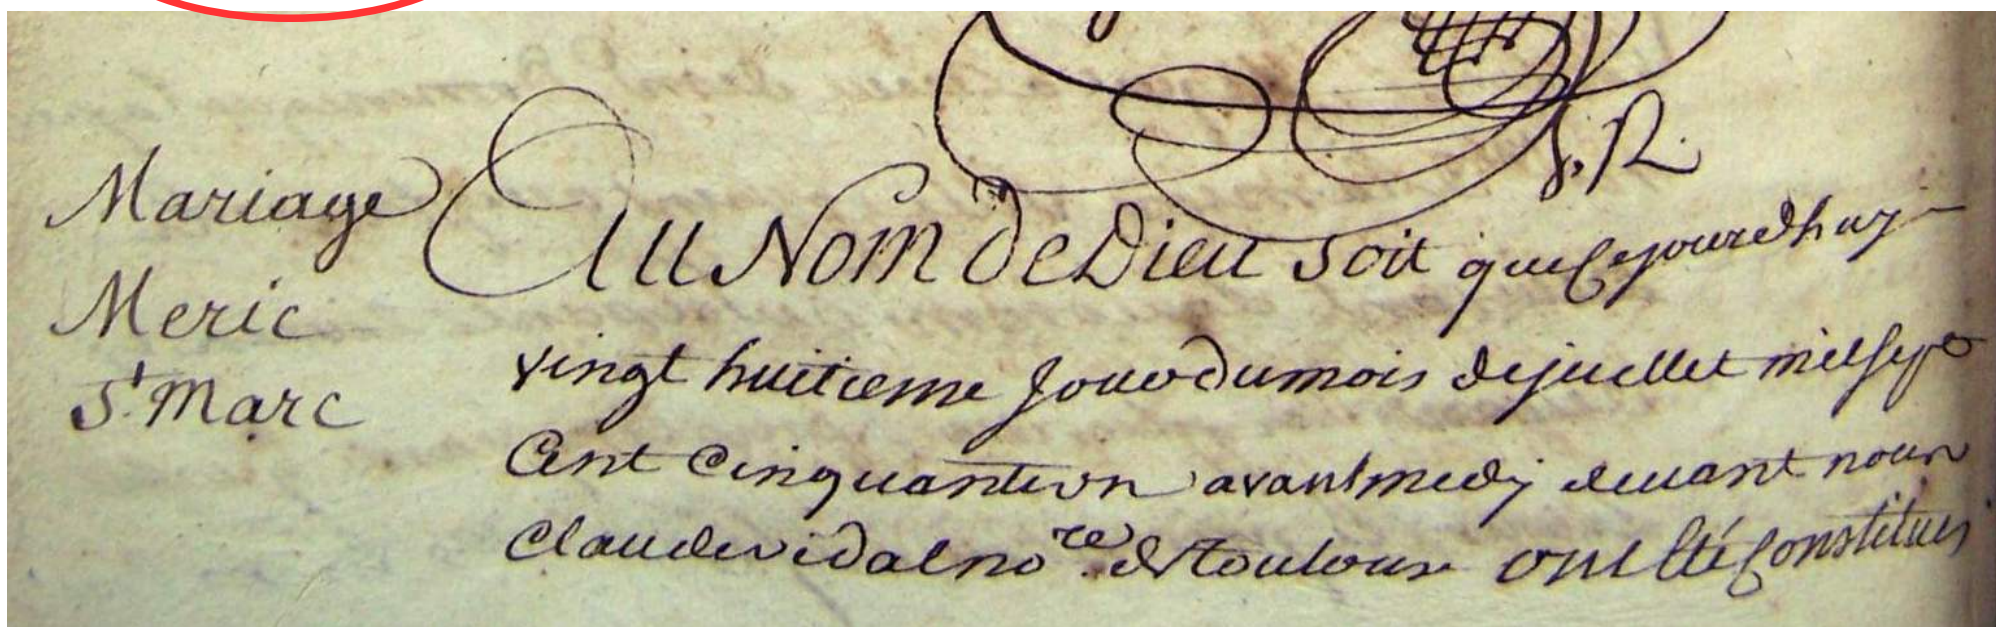 J. R.
Mariage
Meric
St. Marc
Au Nom de Dieu soit que ce jourdhuy
vingt huitieme jour du mois de juillet mil sept
Cent Cinquante un avant medy devant nous
Claude vidal no.re de toulouse ont été Constitués